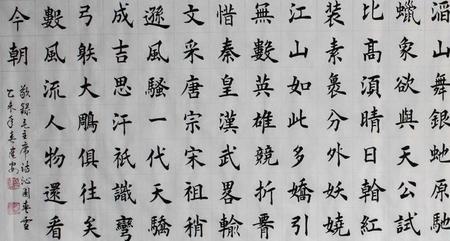 滔山舞銀虵原馳
蠟象欲與天公試
比高湏晴日看紅
裝素裹分外妖嬈
江山如此多嬌引
無數英雄競折腰
惜秦皇漢武畧輸
文采唐宗宋祖稍
遜風騷一代天驕
成吉思汗祇識彎
弓䠶大鵰俱往矣
數風流人物還看
今朝
敬錄毛主席詩沁園春雪
乙未年春